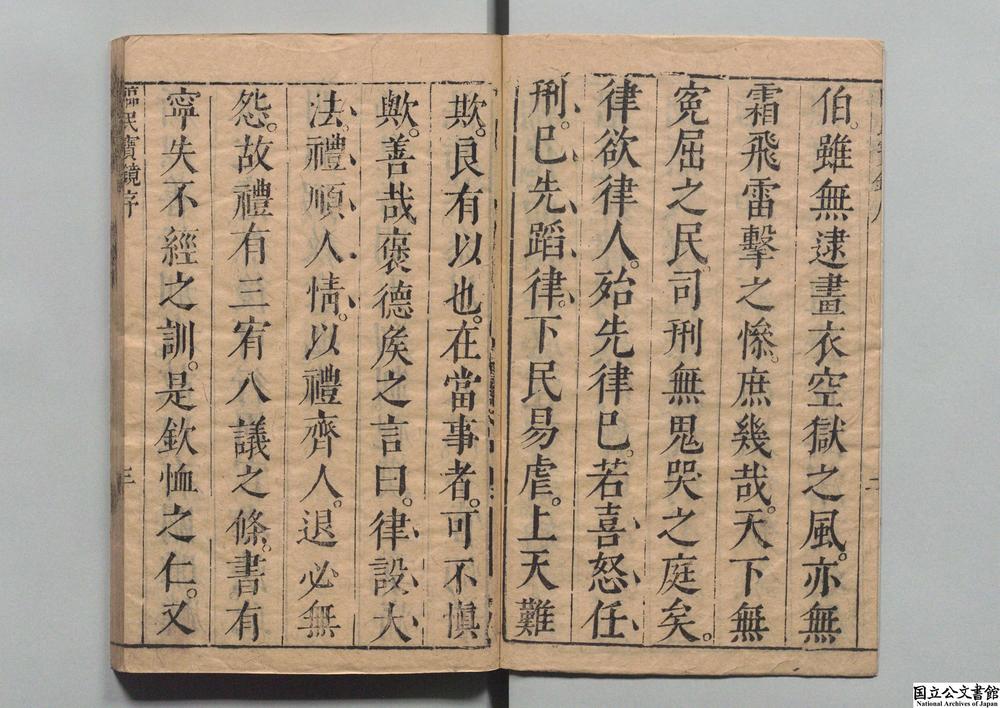 伯。雖無逮畫衣空獄之風。亦無
霜飛雷擊之慘。庶幾哉。天下無
寃屈之民。司刑無鬼哭之庭矣。
律欲律人。殆先律巳。若喜怒任
刑。巳先蹈律。下民易虐。上天難
欺。良有以也。在當事者。可不慎
歟。善哉褒德矦之言曰。律設大
法。禮順人情。以禮齊人。退必無
怨。故禮有三宥八議之條。書有
寧失不經之訓。是欽恤之仁。又
臨民寶鏡序
三
国立公文書館
National Archives of Japan